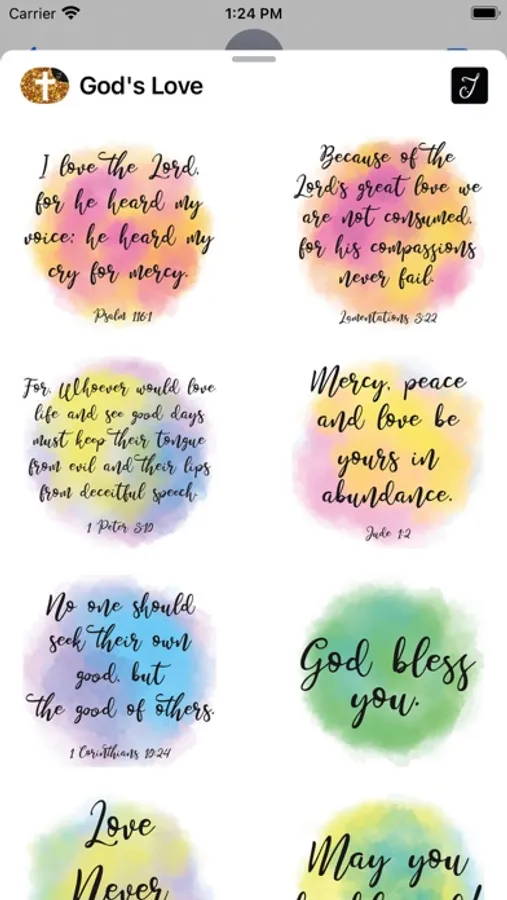 Carrier 1:24 PM
God's Love
I love the Lord,
for he heard my
voice; he heard my
cry for mercy.
Psalm 116:1
Because of the
Lord's great love we
are not consumed,
for his compassions
never fail.
Lamentations 3:22
For, Whoever would love
life and see good days
must keep their tongue
from evil and their lips
from deceitful speech.
1 Peter 3:10
Mercy, peace
and love be
yours in
abundance.
Jude 1:2
No one should
seek their own
good, but
the good of others.
1 Corinthians 10:24
God bless
you.
Love
Never
May you